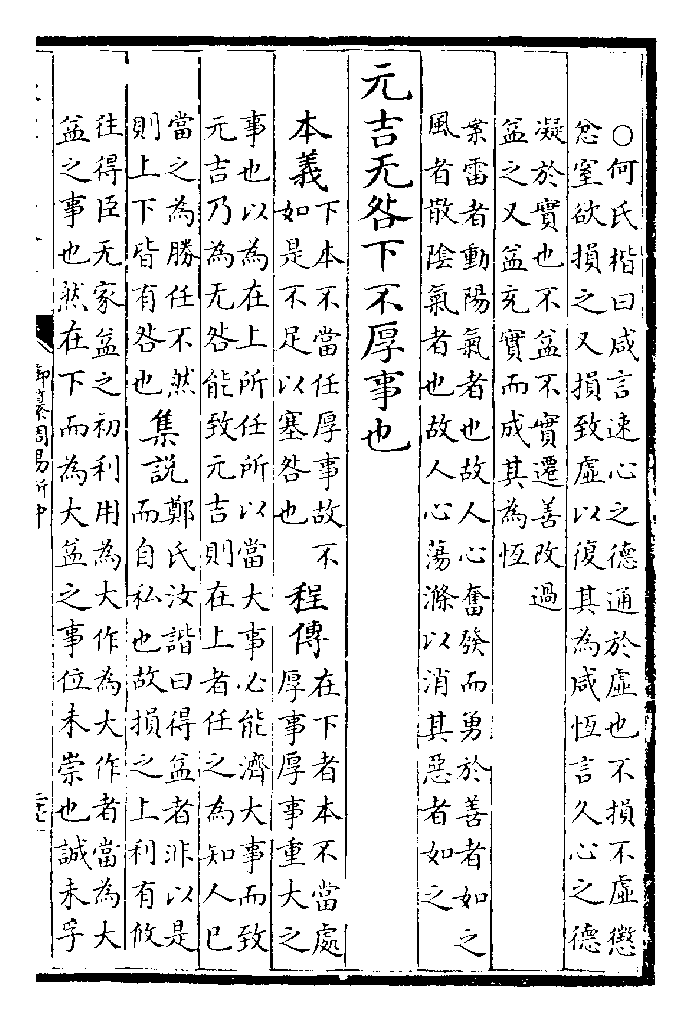 ○何氏楷曰咸言速心之德通於虛也不損不虛懲
忿窒欲損之又損致虛以復其為咸恆言久心之德
凝於實也不益不實遷善改過
益之又益充實而成其為恆
案雷者動陽氣者也故人心奮發而勇於善者如之
風者散陰氣者也故人心蕩滌以消其惡者如之
元吉无咎下不厚事也
本義
下本不當任厚事故不
如是不足以塞咎也
程傳
在下者本不當處
厚事厚事重大之
事也以為在上所任所以當大事必能濟大事而致
元吉乃為无咎能致元吉則在上者任之為知人已
當之為勝任不然
則上下皆有咎也
集說
鄭氏汝諧曰得益者非以是
而自私也故損之上利有攸
往得臣无家益之初利用為大作為大作者當為大
益之事也然在下而為大益之事位未崇也誠未孚
御纂周易折中